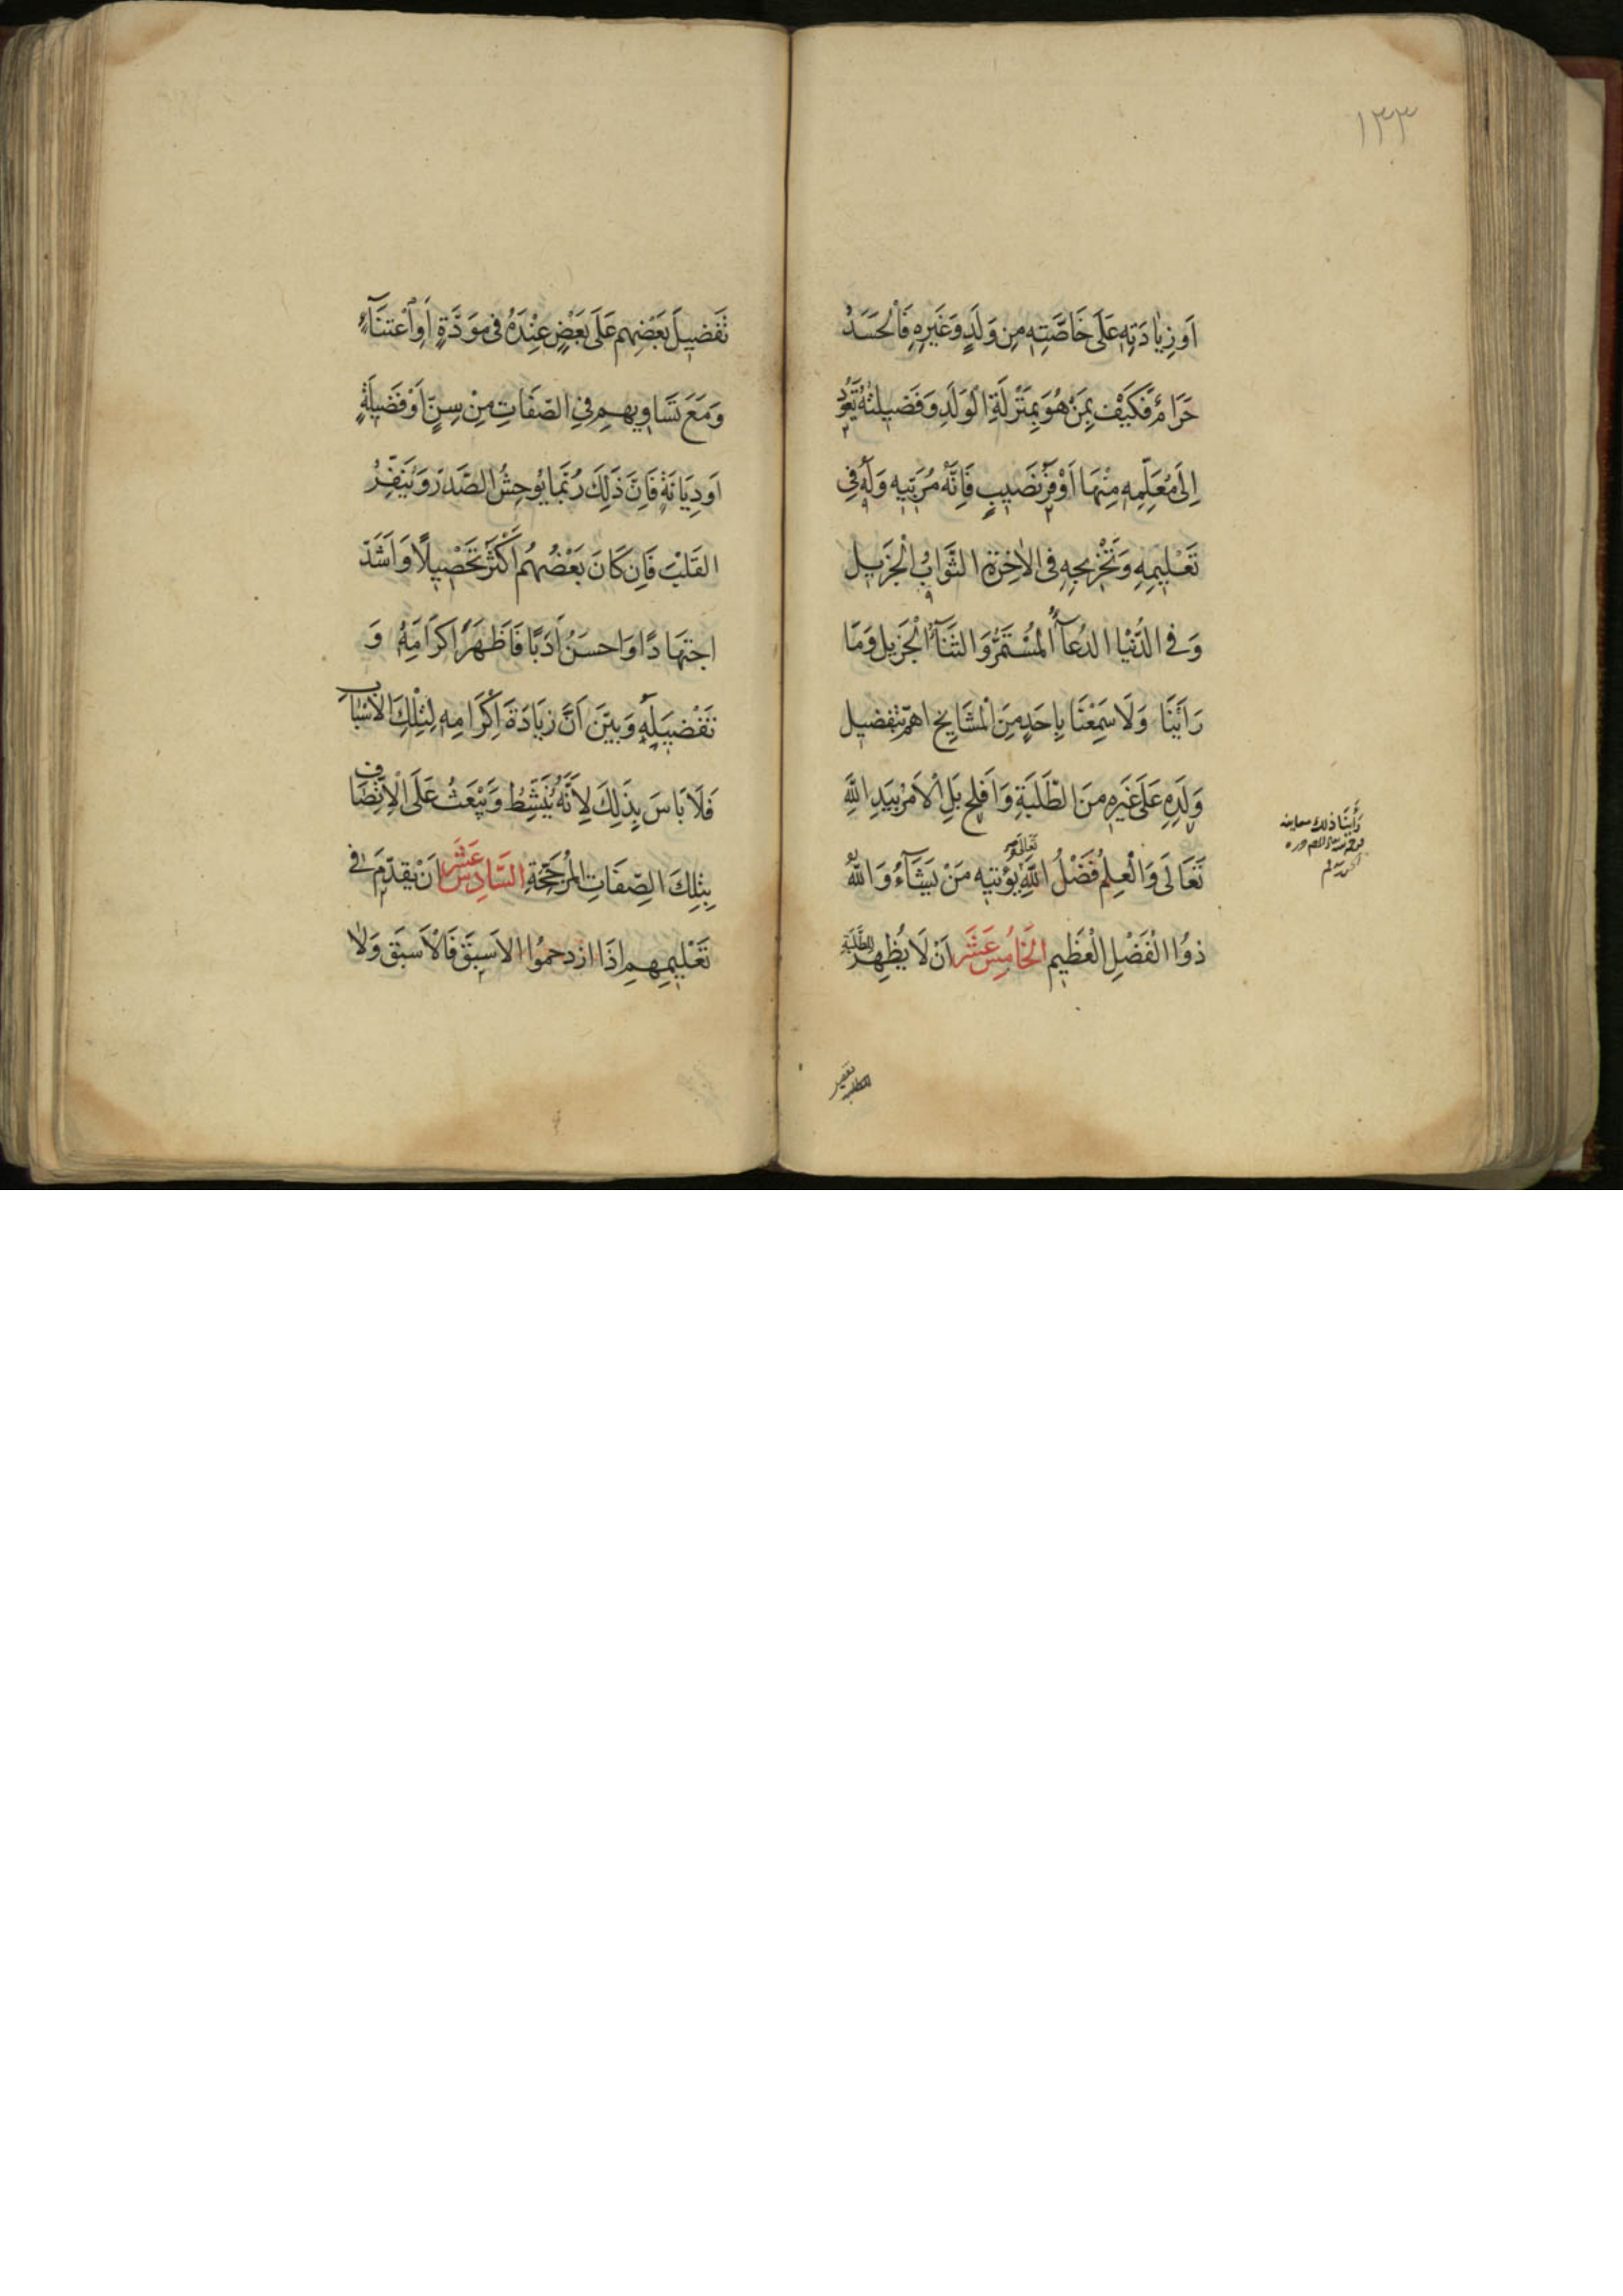 ١٣٣
اَو زِيٰادَتِهِ عَلَى خَاصَّتِهِ مِن وَلَدٍ وَغَيرِهِ فَالْحَسَدُ
حَرَامٌ فَكَيْفَ بِمَنْ هُوَ بِمَنْزِلَةِ الْوَلَدِ وَفَضِيلَتُهُ تَعُودُ
اِلَى مُعَلِّمِهِ مِنْهَا اَوْفَرُ نَصِيبٍ فَاِنَّهُ مُرَبِّيهِ وَلَهُ فِى
تَعْلِيمِهِ وَتَخْرِيجِهِ فِى الاٰخِرَةِ الثَّوَابُ الْجَزِيلُ
وَفِى الدُّنْيَا الدُعَآءُ الْمُسْتَمَرُّ وَالثَّنَآءُ الْجَزِيل وَمَا
رَاَيْنَا وَلَا سَمِعْنَا بِاَحَدٍ مِنَ الْمَشَايِخِ اهْتَمَّ بِتَفْضِيلِ
وَلَدِهِ عَلَى غَيرِهِ مِنَ الطَّلَبَةِ وَاَفْلَحَ بَلِ الْاَمْرُ بِيَدِ اللّٰهِ
تَعَالَى وَالْعِلمُ فَضْلُ اللّٰهِ يُؤتِيهِ مَنْ يَشَآءُ وَاللّٰهُ
ذُوا الْفَضْلِ الْعَظِيمِ الْخَامِسُ عَشَرَ اَنْ لَا يُظْهِرَ لِلطَّلَبَةِ
وَرَأَيْنَا ذلك
تفضيل
تَفْضِيلَ بَعْضِهِم عَلَى بَعْضٍ عِنْدَهُ فِى مَوَدَّةٍ اَوِ اعْتِنَآءٍ
وَمَعَ تَسَاوِيهِم فِى الصِّفَاتِ مِنْ سِنٍّ اَوْ فَضِيلَةٍ
اَو دِيَانَةٍ فَاِنَّ ذَلِكَ رُبَّمَا يُوحِشُ الصَّدرَ وَيُنَفِّرُ
القَلْبَ فَاِن كَانَ بَعْضُهُم اَكْثَرَ تَحْصِيلًا وَاَشَدَّ
اجتِهَادًا وَاَحسَنُ اَدَبًا فَاَظهَرَ اِكرَامَهُ وَ
تَفْضِيلَهُ وَبَيَّنَ اَنَّ زِيَادَةَ اِكْرَامِهِ لِتِلْكَ الْاَسْبَابِ
فَلَا بَاسَ بِذَلِكَ لِاَنَّهُ يُنَشِّطُ وَيَبْعَثُ عَلَى الْاِتِّصَافِ
بِتِلكَ الصِّفَاتِ الْمُرَجِّحَةِ السَّادِسُ عَشَرَ اَنْ يُقَدِّمَ فِى
تَعْلِيمِهِم اِذَا ازدحموُا الاَسبَقَ فَالْاَسبَقَ وَلَا